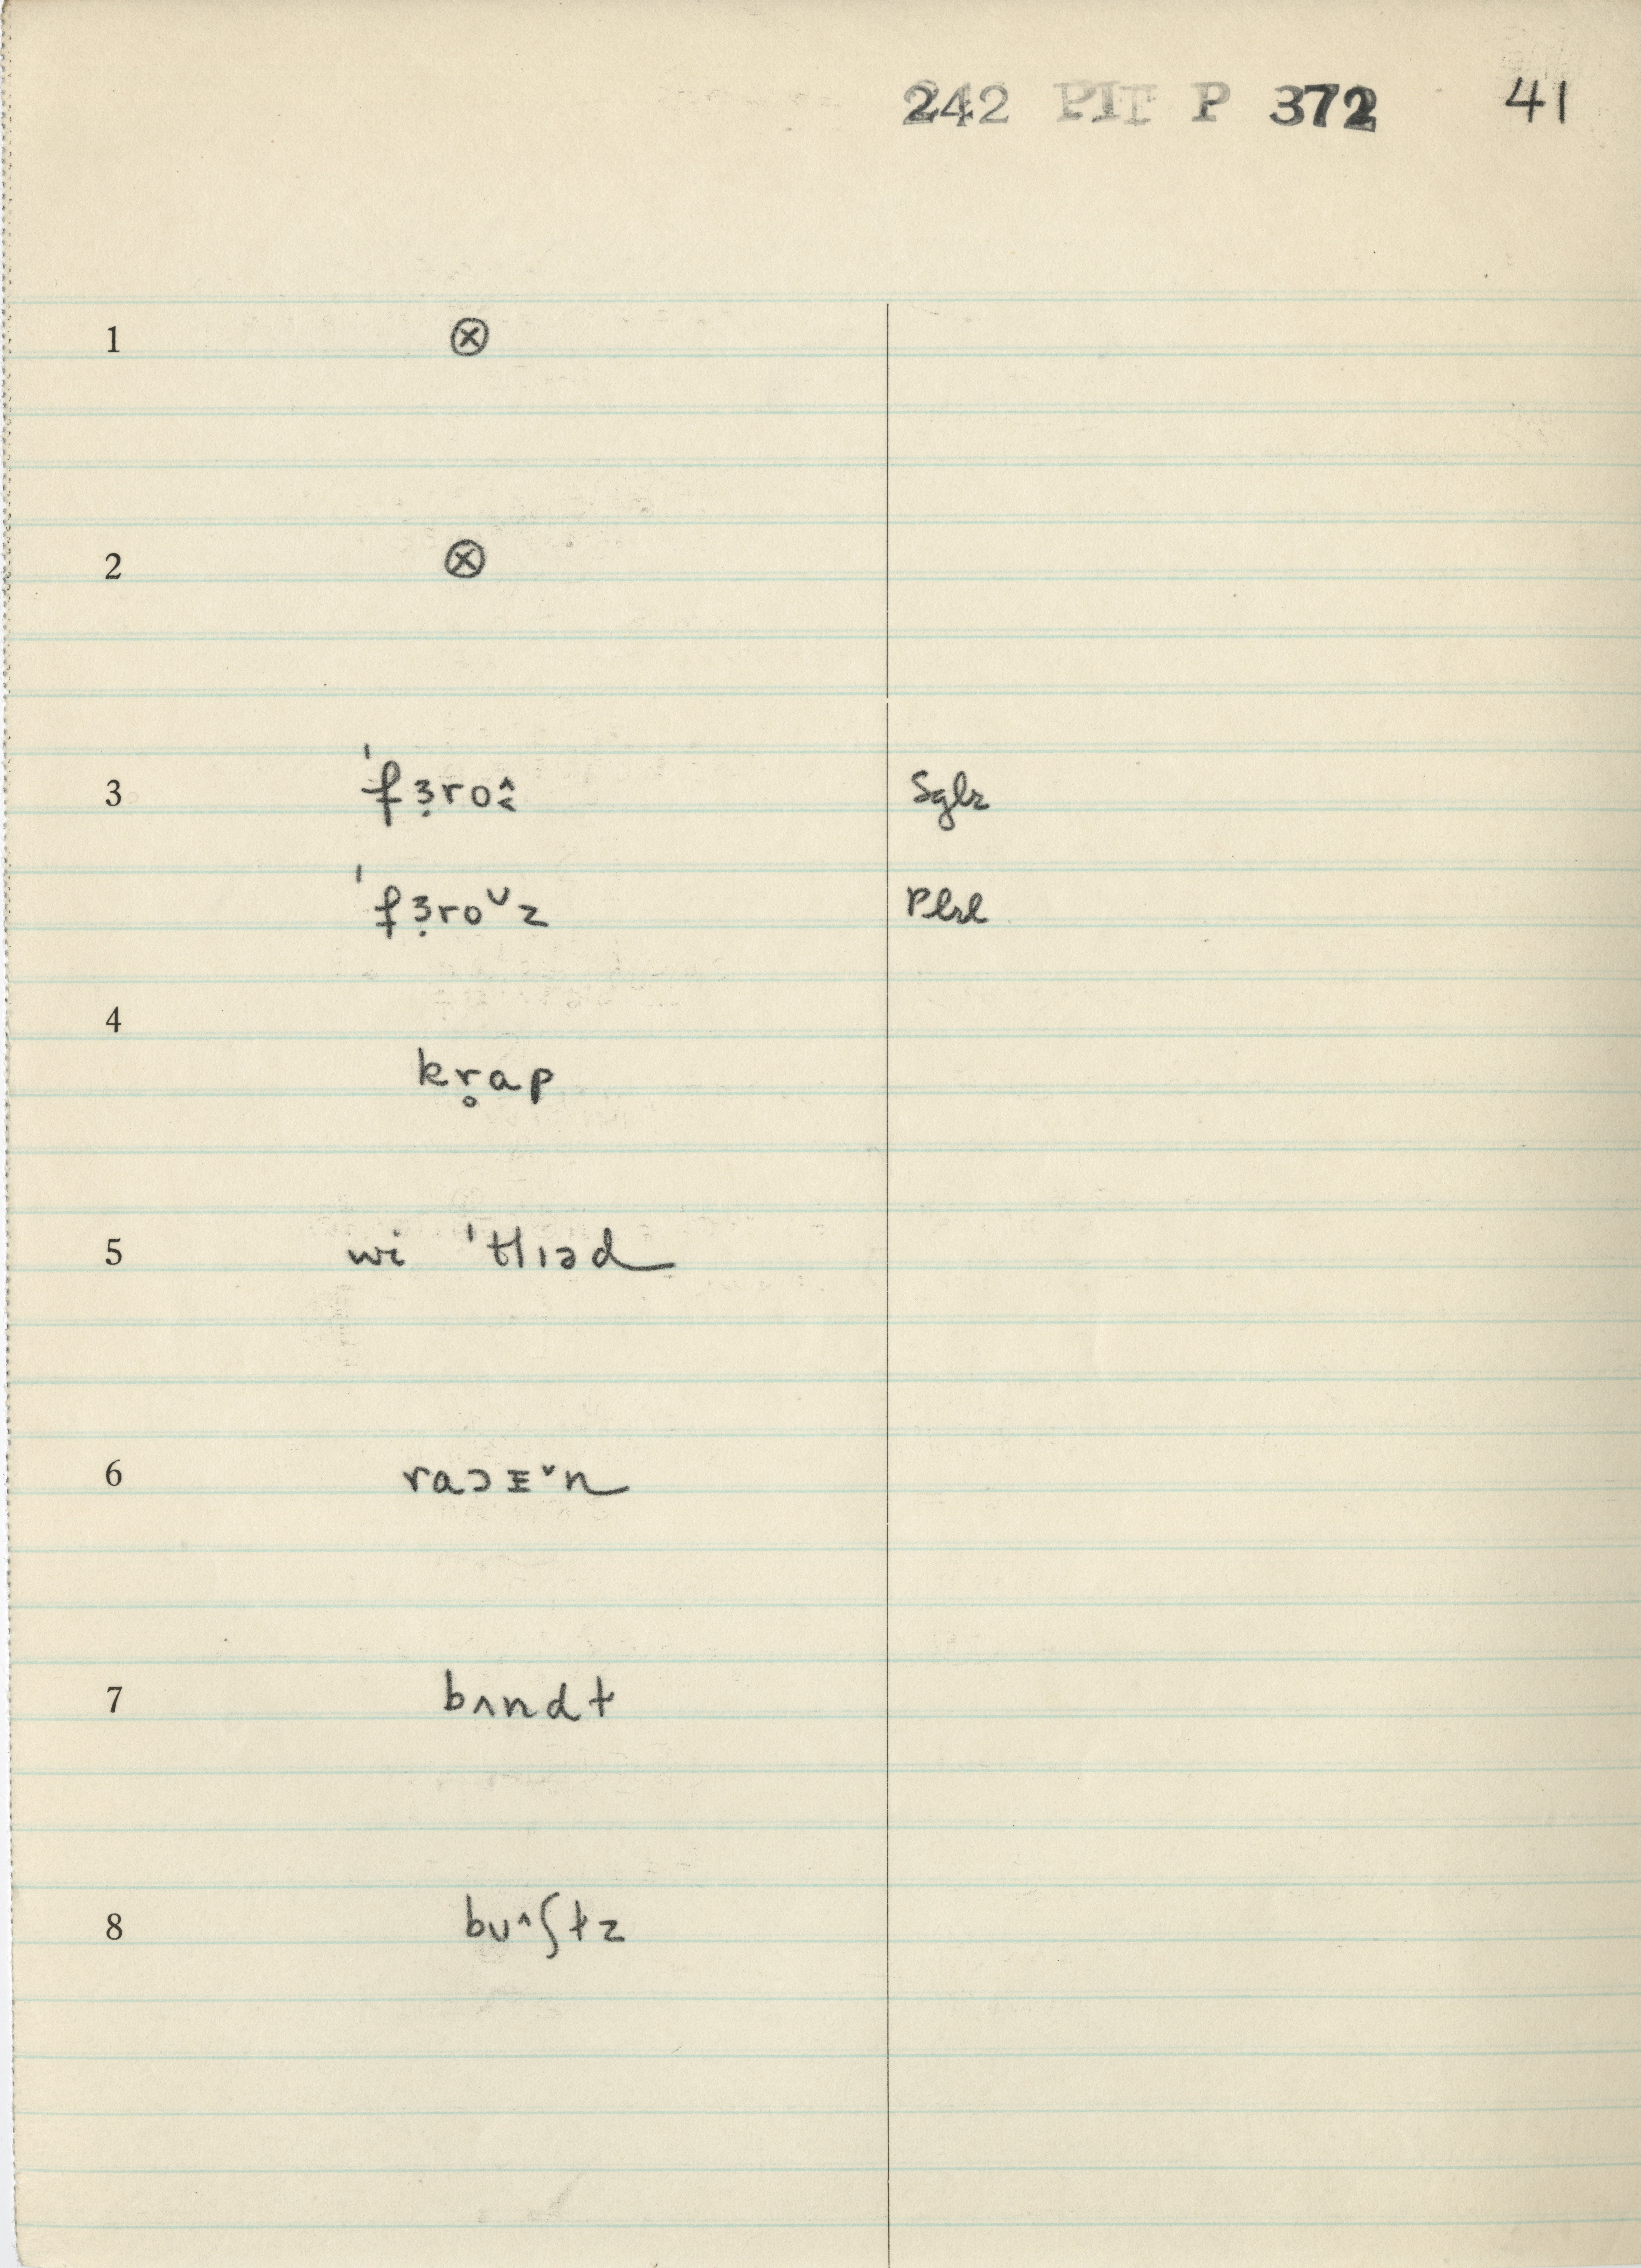 242 PIT P 372 41
1 ⊗
2 ⊗
3 ˈfɜ̣ro˰̂ Sglr
ˈfɜ̣ro˅z Plrl
4 kr̥ap
5 wi ˈtlɪəd
6 raɔɪ˅n
7 bʌndt
8 bʊ^ʃtz